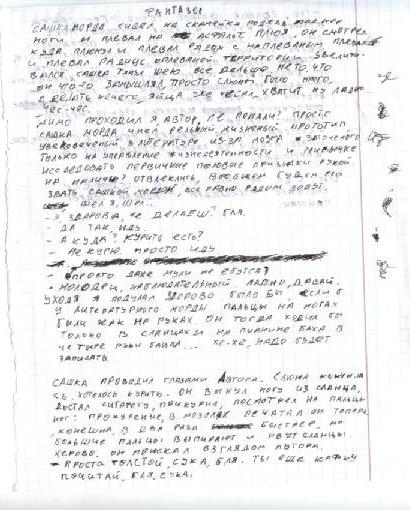 ФАНТАЗЁР
САШКА МОРДА СИДЕЛ НА СКАМЕЙКЕ ПОДЖАВ
НОГИ И ПЛЕВАЛ НА АСФАЛЬТ. ПЛЮЯ, ОН СМОТРЕЛ
КУДА ПЛЮНУЛ И ПЛЕВАЛ РЯДОМ С НАПЛЕВАНЫМ
И ПЛЕВАЛ РАДИУС ОПЛЕВАНОЙ ТЕРРИТОРИИ УВЕЛИЧИ-
ВАЛСЯ. САШКА ТЯНУЛ ШЕЮ ВСЁ ДАЛЬШЕ. НЕ ТО, ЧТО
ОН ЧТО-ТО ЗАМЫШЛЯЛ, ПРОСТО СЛЮНЕЙ БЫЛО МНОГО,
А ДЕЛАТЬ НЕЧЕГО. ЯЙЦА УЖЕ ЧЕСАЛ, ХВАТИТ. НУ ЛАДНО
ЧЕС-ЧЕС.
МИМО ПРОХОДИЛ Я, АВТОР. НЕ ПОНЯЛИ? ПРОСТО
САШКА МОРДА ИМЕЛ РЕАЛЬНЫЙ ЖИЗНЕНЫЙ ПРОТОТИП
УВЕКОВЕЧЕНЫЙ В ЛИТЕРАТУРЕ ИЗ-ЗА МОЗГА ЗАТОЧЕНОГО
ТОЛЬКО НА УПРАВЛЕНИЕ ЖИЗНЕДЕЯТЕЛЬНОСТИ И ПРИВЫЧКЕ
ИССЛЕДОВАТЬ ПЕРВИЧНЫЕ ПОЛОВЫЕ ПРИЗНАКИ РУКОЙ
НА НАЛИЧИЕ. ОТВЛЕКЛИСЬ. ВОБЩЕМ БУДЕМ ЕГО
ЗВАТЬ САШКОЙ МОРДОЙ, ВСЁ РАВНО РЯДОМ ХОДИТ.
ШЁЛ Я, ШЁЛ...
- ЗДОРОВА, ЧЕ ДЕЛАЕШ? БЛЯ.
- ДА ТАК, ИДУ
- А КУДА? КУРИТЬ ЕСТЬ?
- НЕ КУРЮ ПРОСТО ИДУ
- ПРОСТО ДАЖЕ МУХИ НЕ ЕБУТСЯ?
- МОЛОДЕЦ, НАБЛЮДАТЕЛЬНЫЙ. ЛАДНО, ДАВАЙ.
УХОДЯ Я ПОДУМАЛ ЗДОРОВО БЫЛО БЫ ЕСЛИ Б
У ЛИТЕРАТУРНОГО МОРДЫ ПАЛЬЦЫ НА НОГАХ
БЫЛИ КАК НА РУКАХ ОН ТОГДА ХОДИЛ БЫ
ТОЛЬКО В СЛАНЦАХ И НА ПИАНИНЕ БАХА В
ЧЕТЫРЕ РУКИ ... ХЕ-ХЕ, НАДО БУДЕТ
ЗАПИСАТЬ.
САШКА ПРОВОДИЛ ГЛАЗАМИ АВТОРА. СЛЮНА КОНЧИЛА
СЬ, ХОТЕЛОСЬ КУРИТЬ. ОН ВЫНУЛ НОГУ ИЗ СЛАНЦА,
ДОСТАЛ СИГАРЕТУ, ПРИКУРИЛ, ПОСМОТРЕЛ НА ПАЛЬЦЫ
НОГ: ПРОКУРЕНЫЕ, В МОЗОЛЯХ ПЕЧАТАЛ ОН ТЕПЕРЬ,
КОНЕШНА, В ДВА РАЗА БЫСТРЕЕ, НО
БОЛЬШИЕ ПАЛЬЦЫ ВЫПИРАЮТ И РВУТ СЛАНЦЫ.
ХЕРОВО. ОН ПОИСКАЛ ВЗГЛЯДОМ АВТОРА.
- ПРОСТА ТОЛСТОЙ, СУКА, БЛЯ. ТЫ ЕЩЕ КАФКУ
ПОЧИТАЙ, БЛЯ, СУКА.